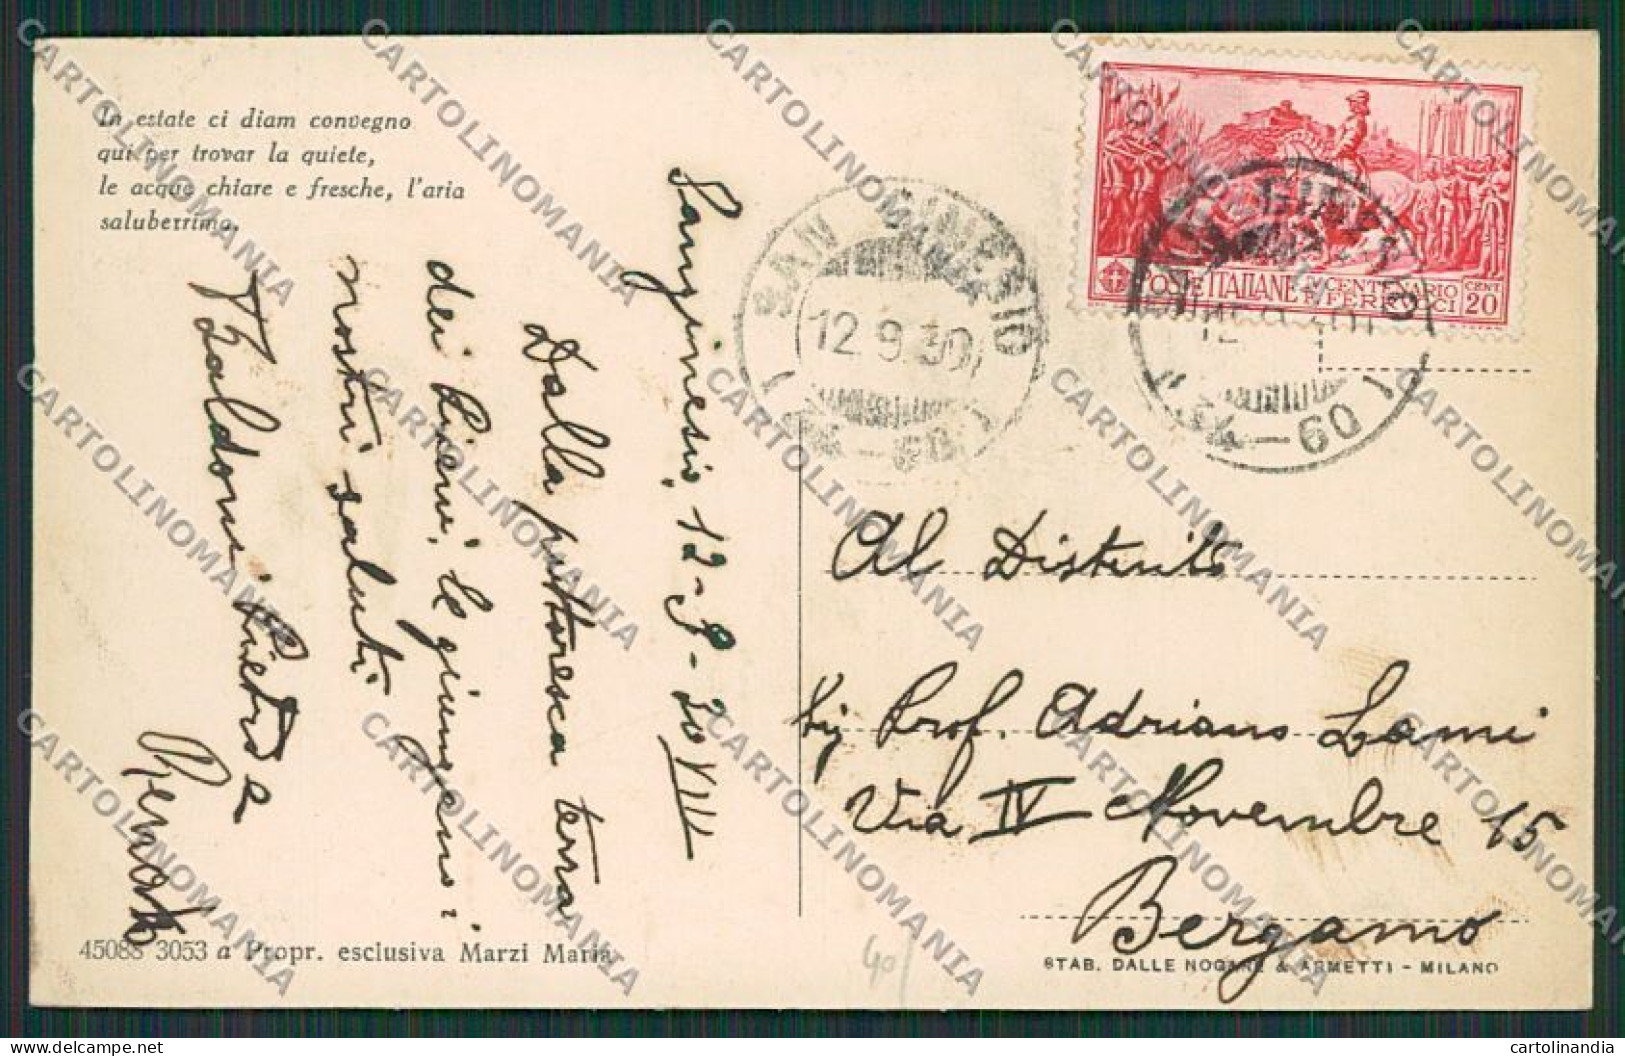 In estate ci diam convegno
qui per trovar la quiete,
le acque chiare e fresche, l'aria
saluberrima.
Sanginesio, 12-9-30 VIII
Dalla pittoresca terra
dei Piceni, le giungano i
nostri saluti.
Baldoni Pietro e
SAN GINESIO
12.9.30
54-60
POSTE ITALIANE
IV CENTENARIO
F. FERRUCCI
CENT
20
SAN GINESIO
54-60
Al Distinto
Sig Prof. Adriano Lami
Via IV Novembre 15
Bergamo
45088 3053 a Propr. esclusiva Marzi Maria
STAB. DALLE NOGARE & ARMETTI - MILANO
40
CARTOLINOMANIA
www.delcampe.net
cartolinandia